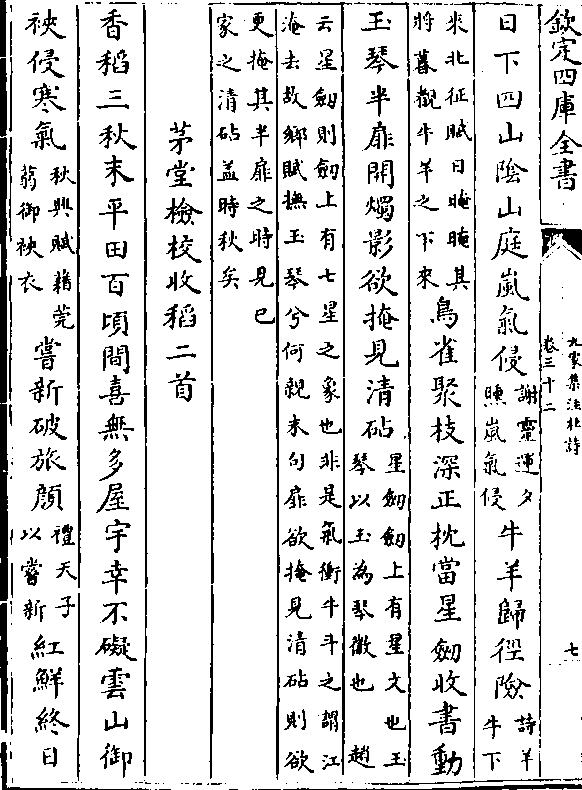 欽定四庫全書
九家集注杜詩
卷三十二
七
日下四山陰山庭嵐氣侵謝靈運夕曛嵐氣侵牛羊歸徑險詩羊牛下
來北征賦日晻晻其將暮觀牛羊之下來鳥雀聚枝深正枕當星劒收書動
玉琴半扉開燭影欲掩見清砧星劒劒上有星文也玉琴以玉為琴徽也趙
云星劒則劒上有七星之象也非是氣衝牛斗之謂江淹去故鄉賦撫玉琴兮何親末句扉欲掩見清砧則欲
更掩其半扉之時見已家之清砧益時秋矣
茅堂檢校收稻二首
香稻三秋末平田百頃間喜無多屋宇幸不礙雲山御
裌侵寒氣秋興賦藉莞蒻御裌衣嘗新破旅顔禮天子以嘗新紅鮮終日